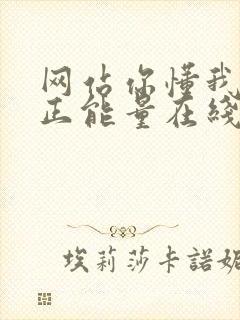 网估你懂我
正能量在綫
埃莉莎卡諾妮